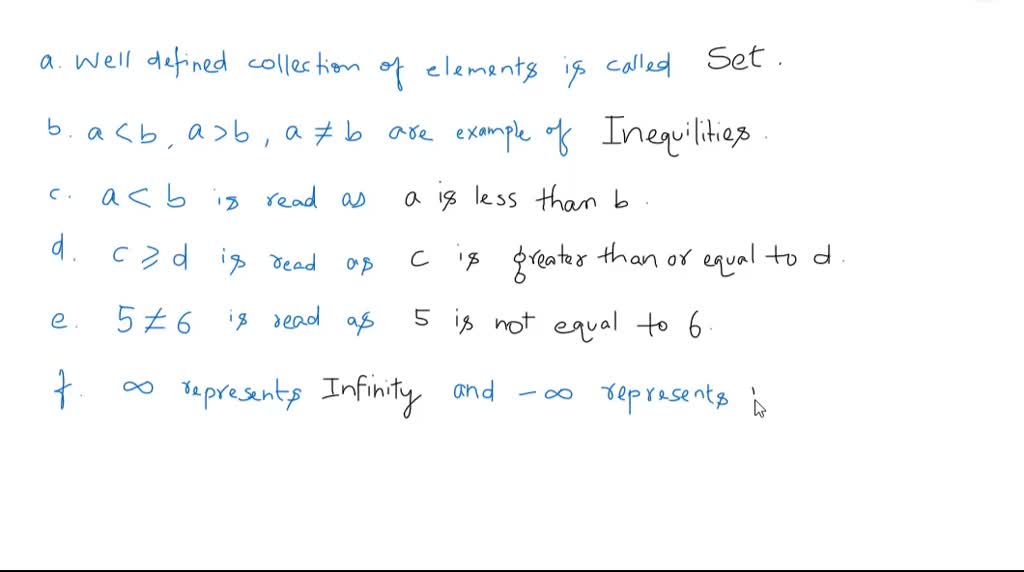 a. Well defined collection of elements is called Set.
b. a < b, a > b, a ≠ b are example of Inequilities.
c. a < b is read as a is less than b.
d. c ⩾ d is read as c is greater than or equal to d.
e. 5 ≠ 6 is read as 5 is not equal to 6.
f. ∞ represents Infinity and -∞ represents